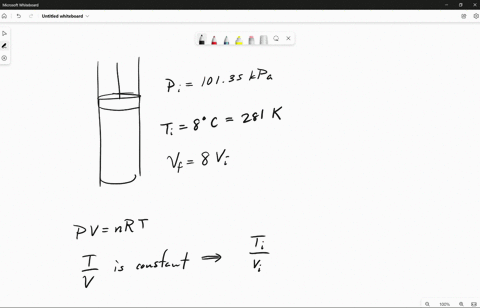 Microsoft Whiteboard
Untitled whiteboard
Pi = 101.35 kPa
Ti = 8° C = 281 K
Vf = 8 Vi
PV = nRT
T/V is constant ⇒ Ti/Vi
100%